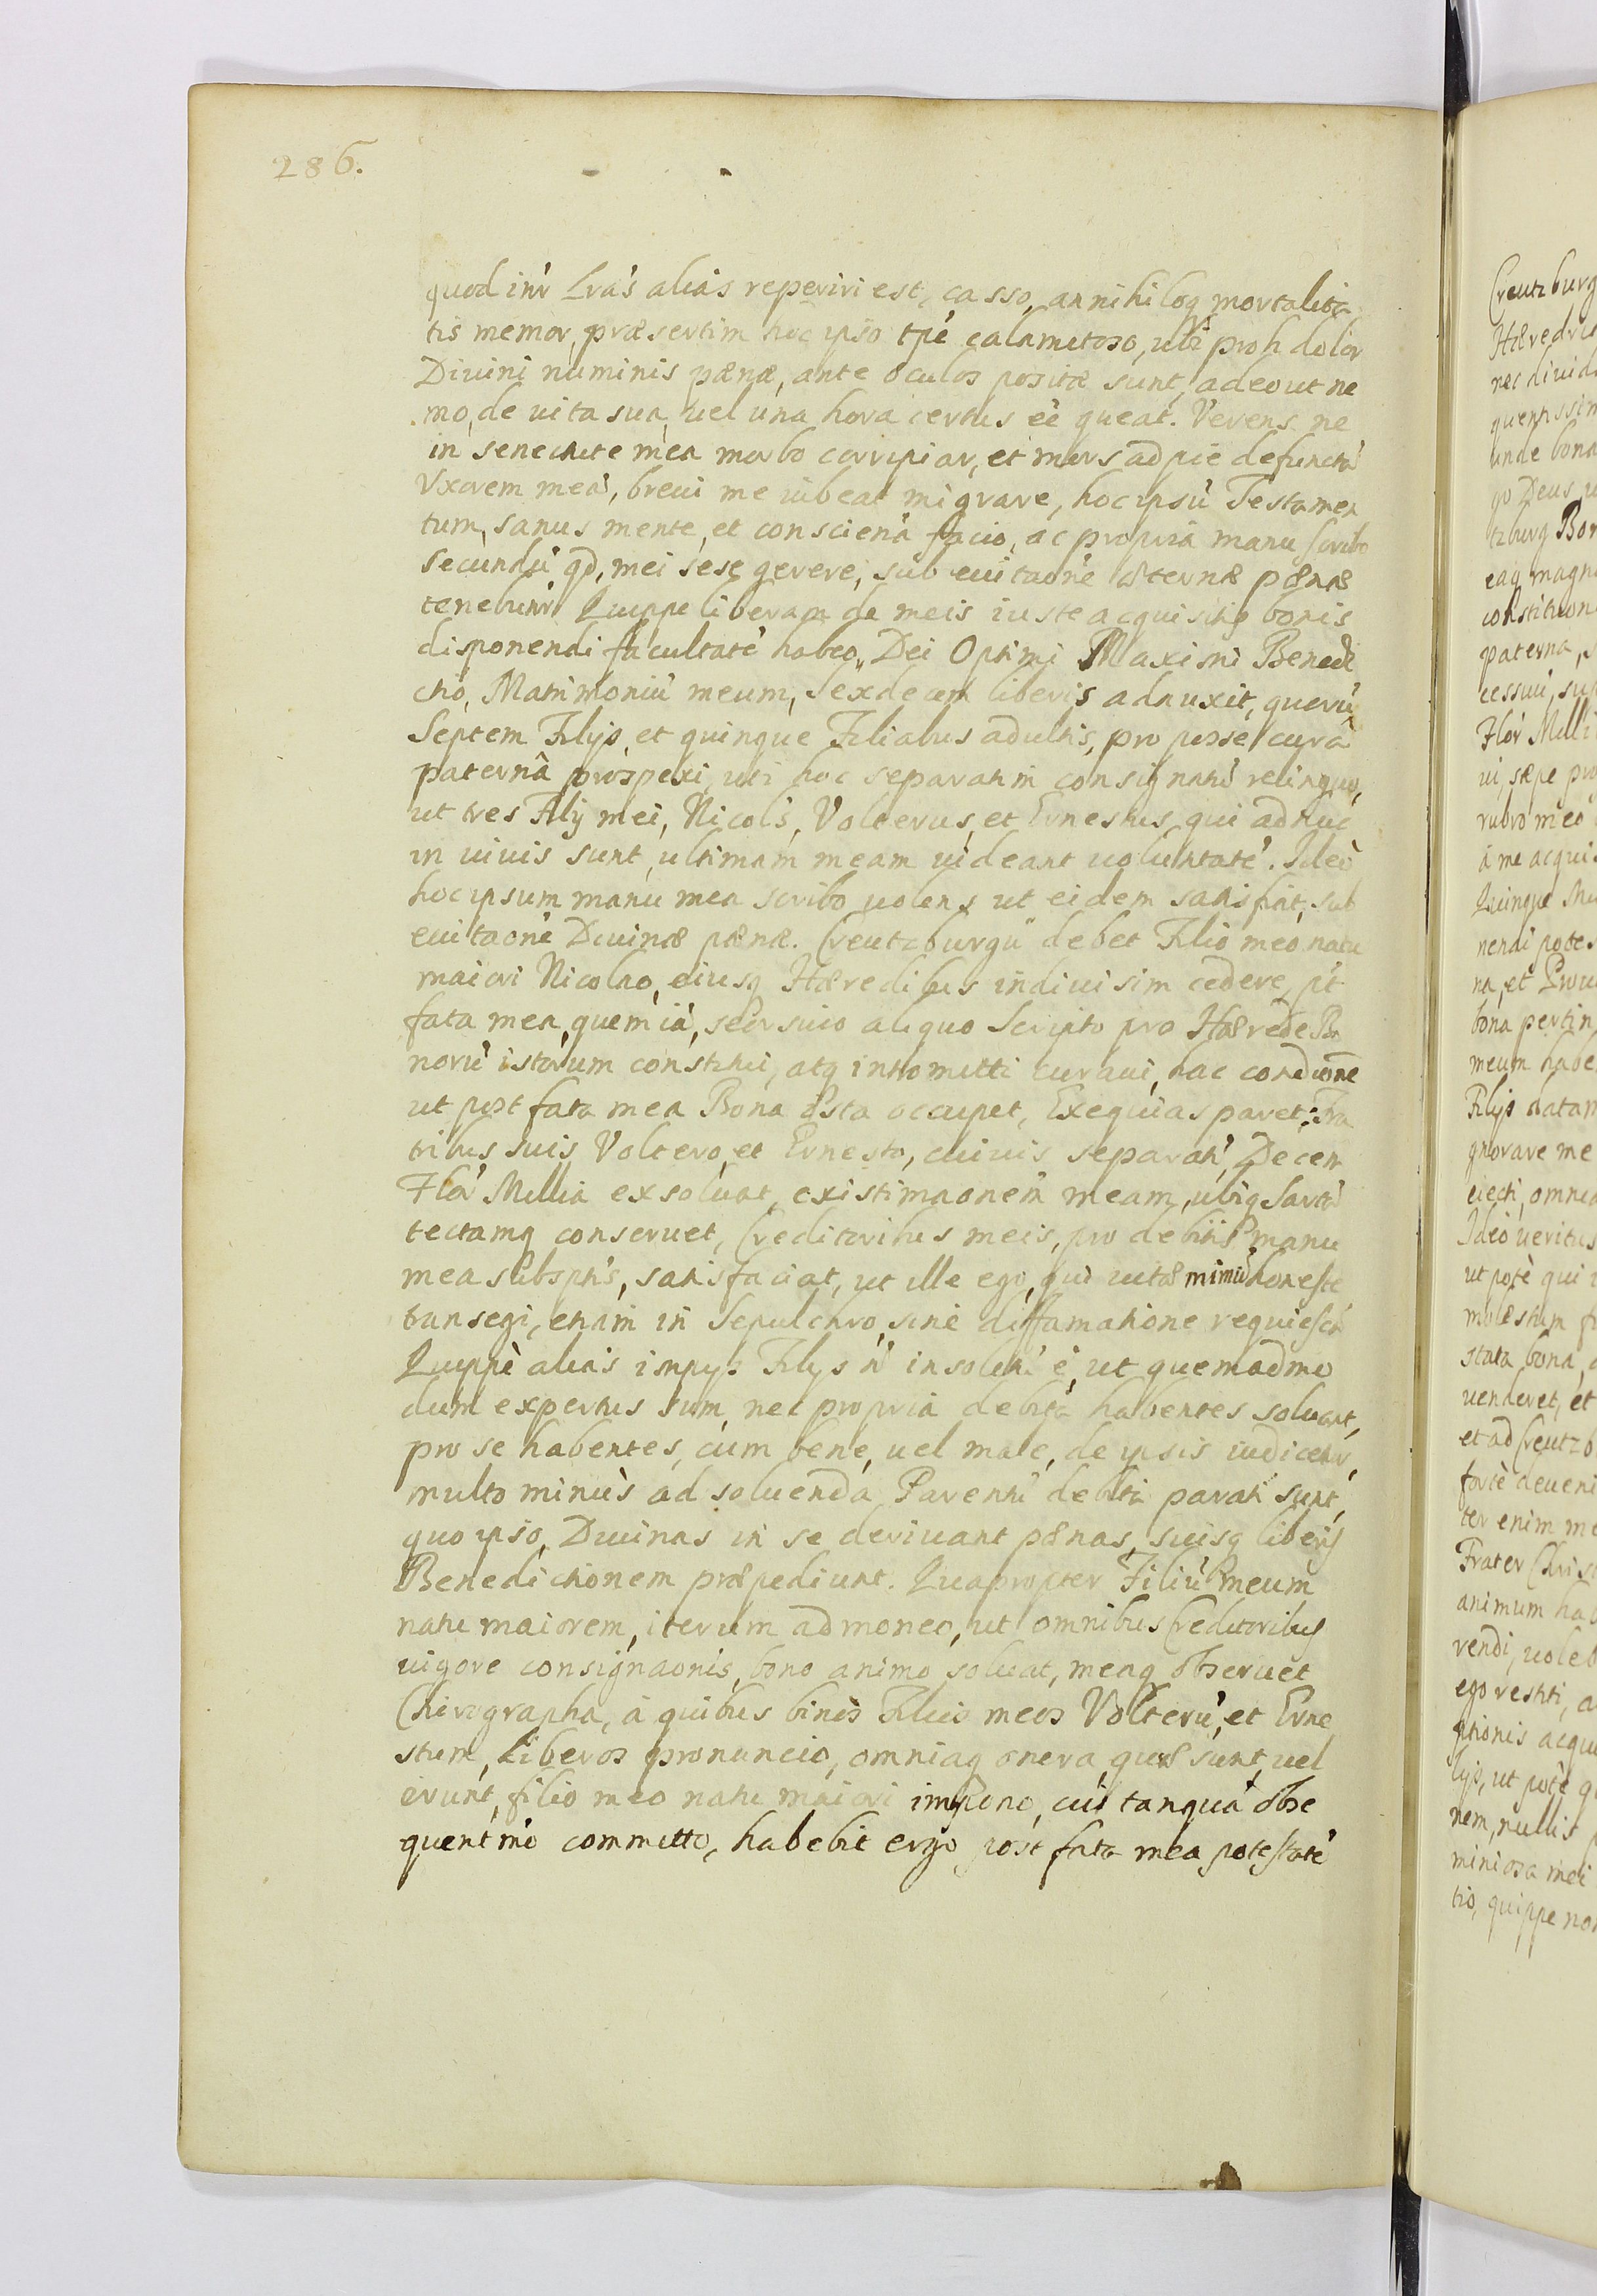 286.
quod inr̀ Lrás alias reperiri est, casso, annihiloq mortalita
tis memor, præsertim hoc ipso tpè calamitoso, ubi proh dolor
Divini numinis pænæ, ante oculos positæ sunt, adeo ut ne
mo, de uita sua, uel una hora certus eè queat. Verens ne
in senectute mea morbo corripiar, et mors ad pie defunctá
Vxorem meá, breui me iubeat migrare, hoc ipsú Testamen
tum, sanus mente, et conscieñá facio, ac propriâ manu scribo
secundú qd, mei sese gerere, sub euitaone æternæ pænæ
tenebunr̀ Quippe liberam de meis iuste acquisitis bonis
disponendi facultaté habeo, Dei Optimi Maximi Benedi
ctio, Matrimoniú meum, Sexdecem liberis adauxit, quorú
Septem Filijs, et quinque Filiabus adultis, pro posse curâ
paternâ prospexi, uti hoc separatim consignatú relinquo,
ut tres Filij mei, Nicols, Volterus, et Ernestus, qui adhuc
in uiuis sunt, ultimam meam uideant uoluntaté. Ideò
hoc ipsum manu mea scribo uolens ut eidem satisfiat, sub
euitaoné Diuinæ pænæ. Creutzburgú debet Filio meo natu
maiori Nicolao, eiusq Hæredibus indiuisim cedere, pt
fata mea, quem iá, seorsiuo aliquo Scripto pro Hærede Bo
norú istorum constitui, atq intromitti curaui, hac condicone
ut post fata mea Bona ista occupet, Exequias paret, Fra
tribus suis Voltero, et Ernesto, cuiuis separatí, Decem
Flor Millia exsoluat, existimaonem meam, ubiq Sartá
tectamq conseruet, Creditoribus meis, pro debitis manu
mea subsptis, satisfaciat, ut ille ego, qui uitæ mimú honeste
transegi, etiam in Sepulchro, sine diffamatione requiescá
Quippè alias impijs Filijs ń insolitú é, ut quemadmo
dum expertus sum, nec propria debita habentes soluant,
pro se habentes, cum bene, uel male, de ipsis iudicetur,
multo minùs ad soluenda Parentú debita parati sunt,
quo ipso, Diuinas in se deriuant pænas, suisq liberis
Benedictionem præpediunt. Quapropter Filiú meum
natu maiorem, iterum admoneo, ut omnibus Creditoribus
uigore consignaonis, bono animo soluat, meaq obseruet
Chirographa, à quibus binos Filios meos Volterú, et Erne
stum, Liberos pronuncio, omniaq onera, quæ sunt, uel
erunt, filio meo natu maiori impono, cui tanquá obse
quentmò committo, habebit ergo post fata mea potestaté
Creutzburg
nec diuid
quentissim
unde bona
go Deus
tzburg Bon
eaq magn
constituon
paterna,
cessui, sup
Flor Milli
ui, sæpe pro
rubro meo
à me acqui
Quinque
nendi potes
na, et Prou
bona pertin
meum habe
Filijs datam
gnorare me
eiecti, omnia
Ideò ueritus
ut potè qui
molestum
stata bona,
uenderet, et
et ad Creutzb
fortè deueni
ter enim me
Frater Chris
animum hab
rendi, uoleb
ego restiti, a
ptionis acqu
lijs, ut potè q
nem, nullis
miniosa mei
tio, quippe non